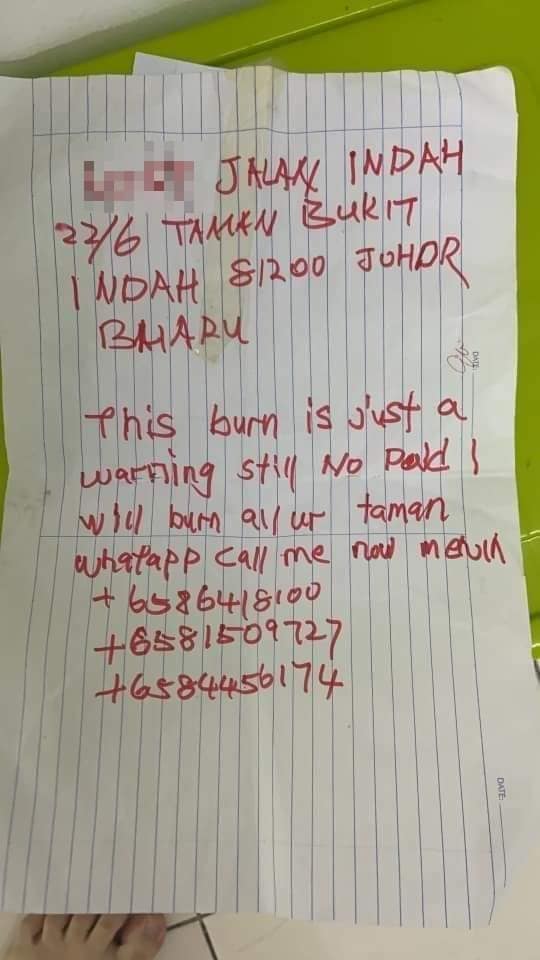 JALAN INDAH
22/6 TAMAN BUKIT
INDAH 81200 JOHOR
BAHARU
DATE:
This burn is just a
warning still No paid I
will burn all ur taman
whatapp call me now mervin
+6586418100
+6581509727
+6584456174
DATE: